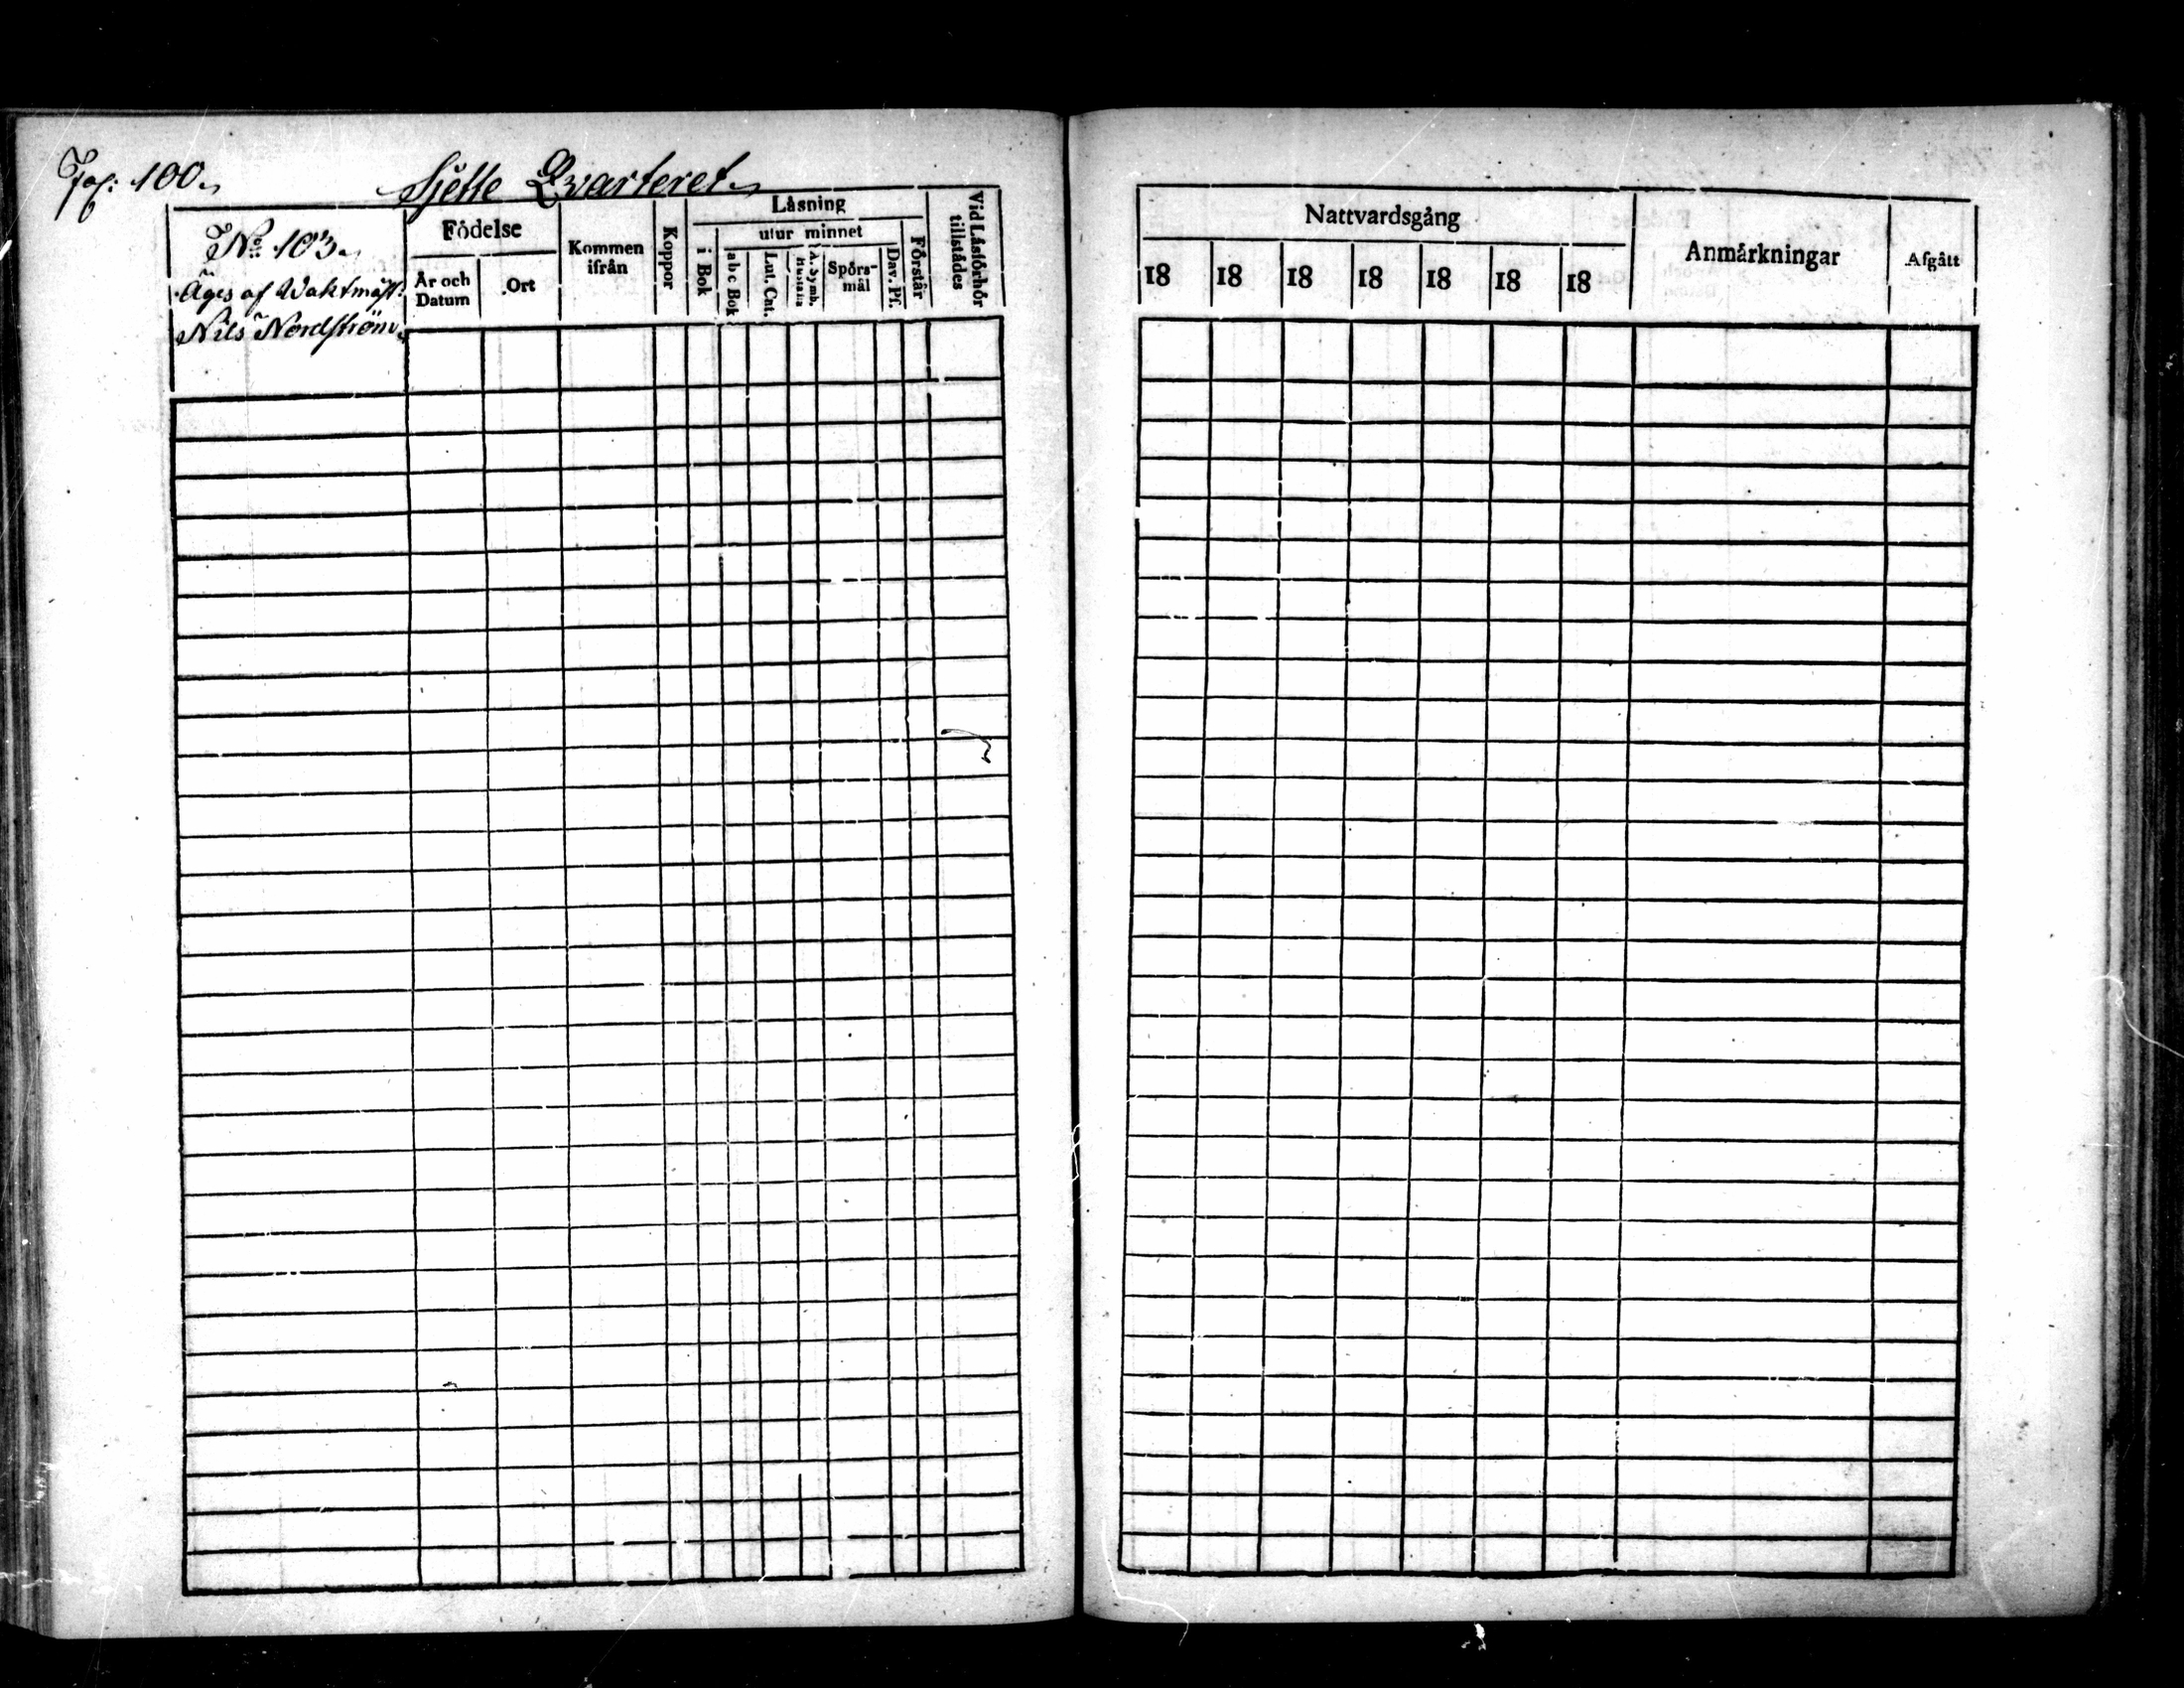 Fol: 100.
Sjette Qvarteret
No 103.
Äges af Waktmäst:
Nils Nordström.
Födelse
År och Datum
Ort
Kommen ifrån
Koppor
Läsning
i Bok
utur minnet
abc Bok
Lut. Cat.
A. Symb.
Hustafla
Spörs-
mål
Dav. Pf.
Förstår
Vid Läsförhör
tillstädes
Nattvardsgång
18 18 18 18 18 18 18
Anmärkningar
Afgått